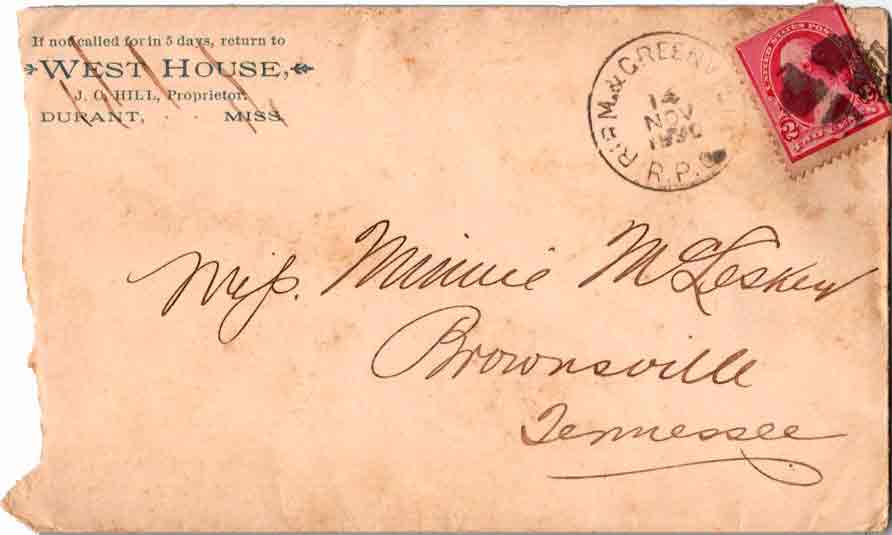 If not called for in 5 days, return to
WEST HOUSE,
J. C. HILL, Proprietor.
DURANT, MISS.
& GREENV
14
NOV
R.P.O.
UNITED STATES POS
2
Miss. Minnie McLeskey
Brownsville
Tennessee